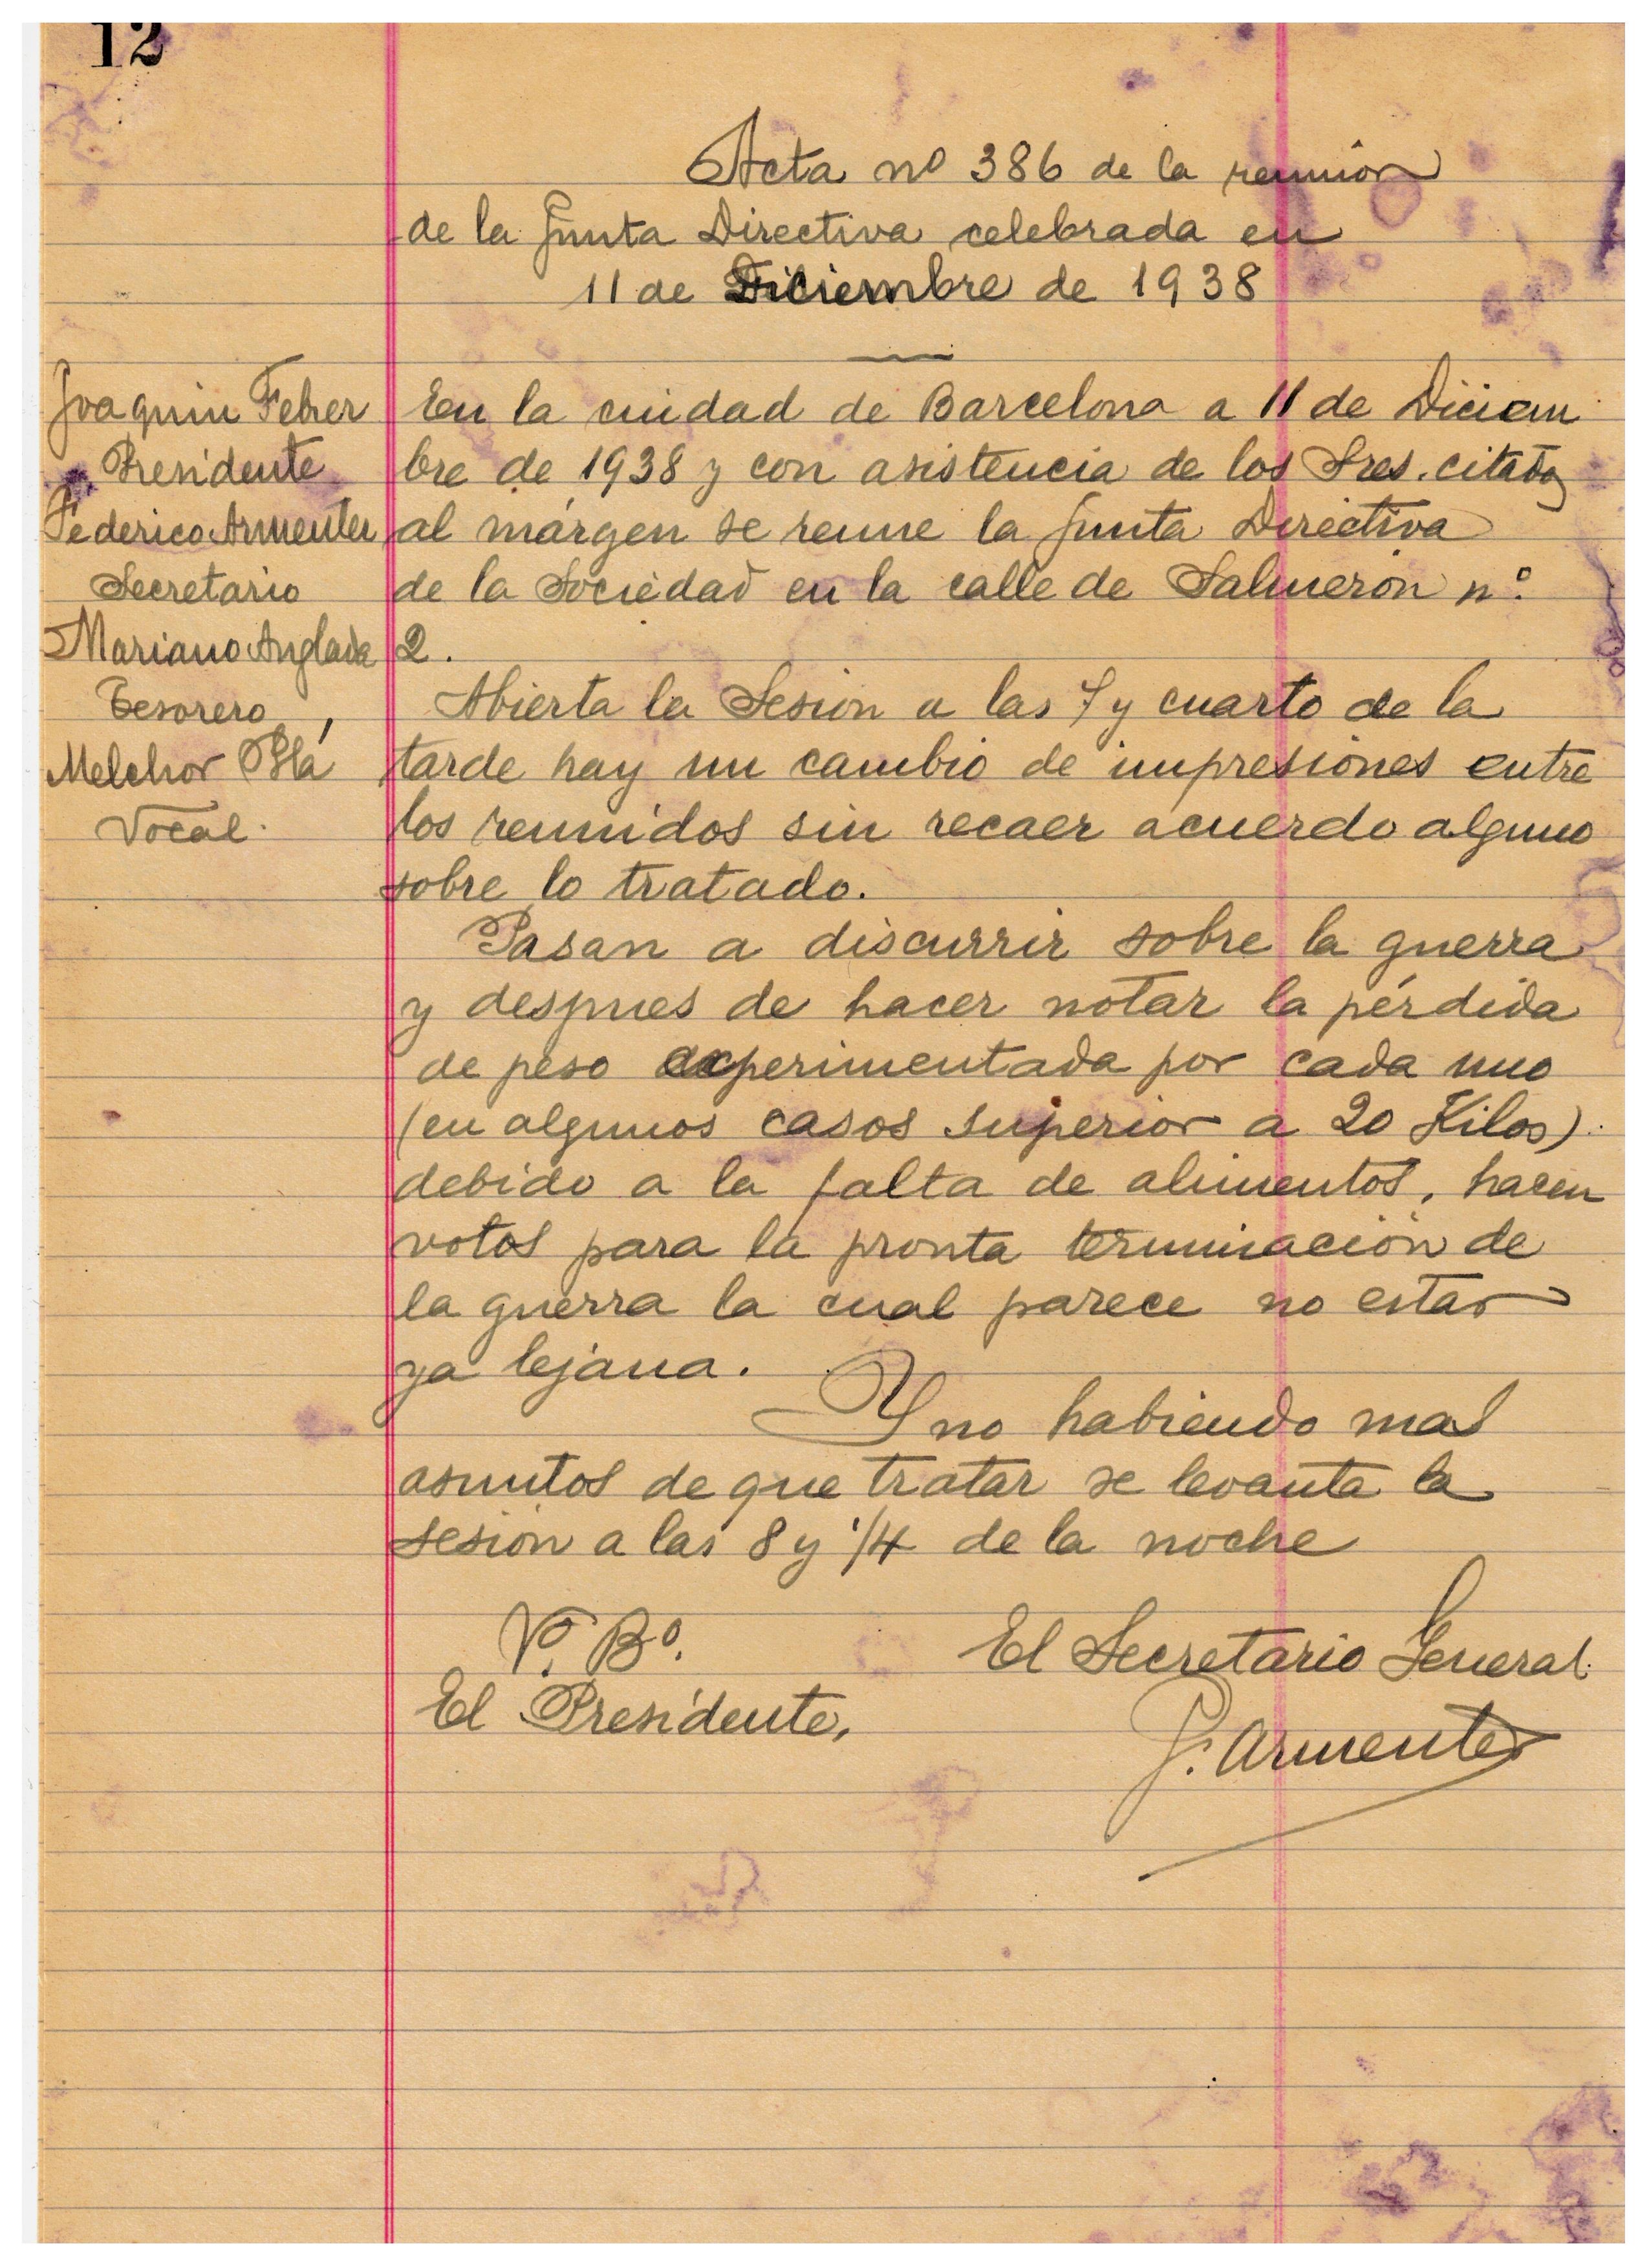 12
Acta nº 386 de la reunión
de la Junta Directiva celebrada en
11 de Diciembre de 1938
Joaquin Febrer
Presidente
Federico Armenter
Secretario
Mariano Anglada
Tesorero
Melchor Plá
Vocal.
En la ciudad de Barcelona a 11 de Diciem
bre de 1938 y con asistencia de los Sres. citados
al márgen se reune la Junta Directiva
de la Sociedad en la calle de Salmerón nº
2.
Abierta la Sesión a las 7 y cuarto de la
tarde hay un cambio de impresiones entre
los reunidos sin recaer acuerdo alguno
sobre lo tratado.
Pasan a discurrir sobre la guerra
y despues de hacer notar la pérdida
de peso experimentada por cada uno
(en algunos casos superior a 20 Kilos)
debido a la falta de alimentos, hacen
votos para la pronta terminación de
la guerra la cual parece no estar
ya lejana.
Y no habiendo mas
asuntos de que tratar se levanta la
sesión a las 8 y 1/4 de la noche
Vº. Bº.
El Presidente,
El Secretario General
F. Armenter